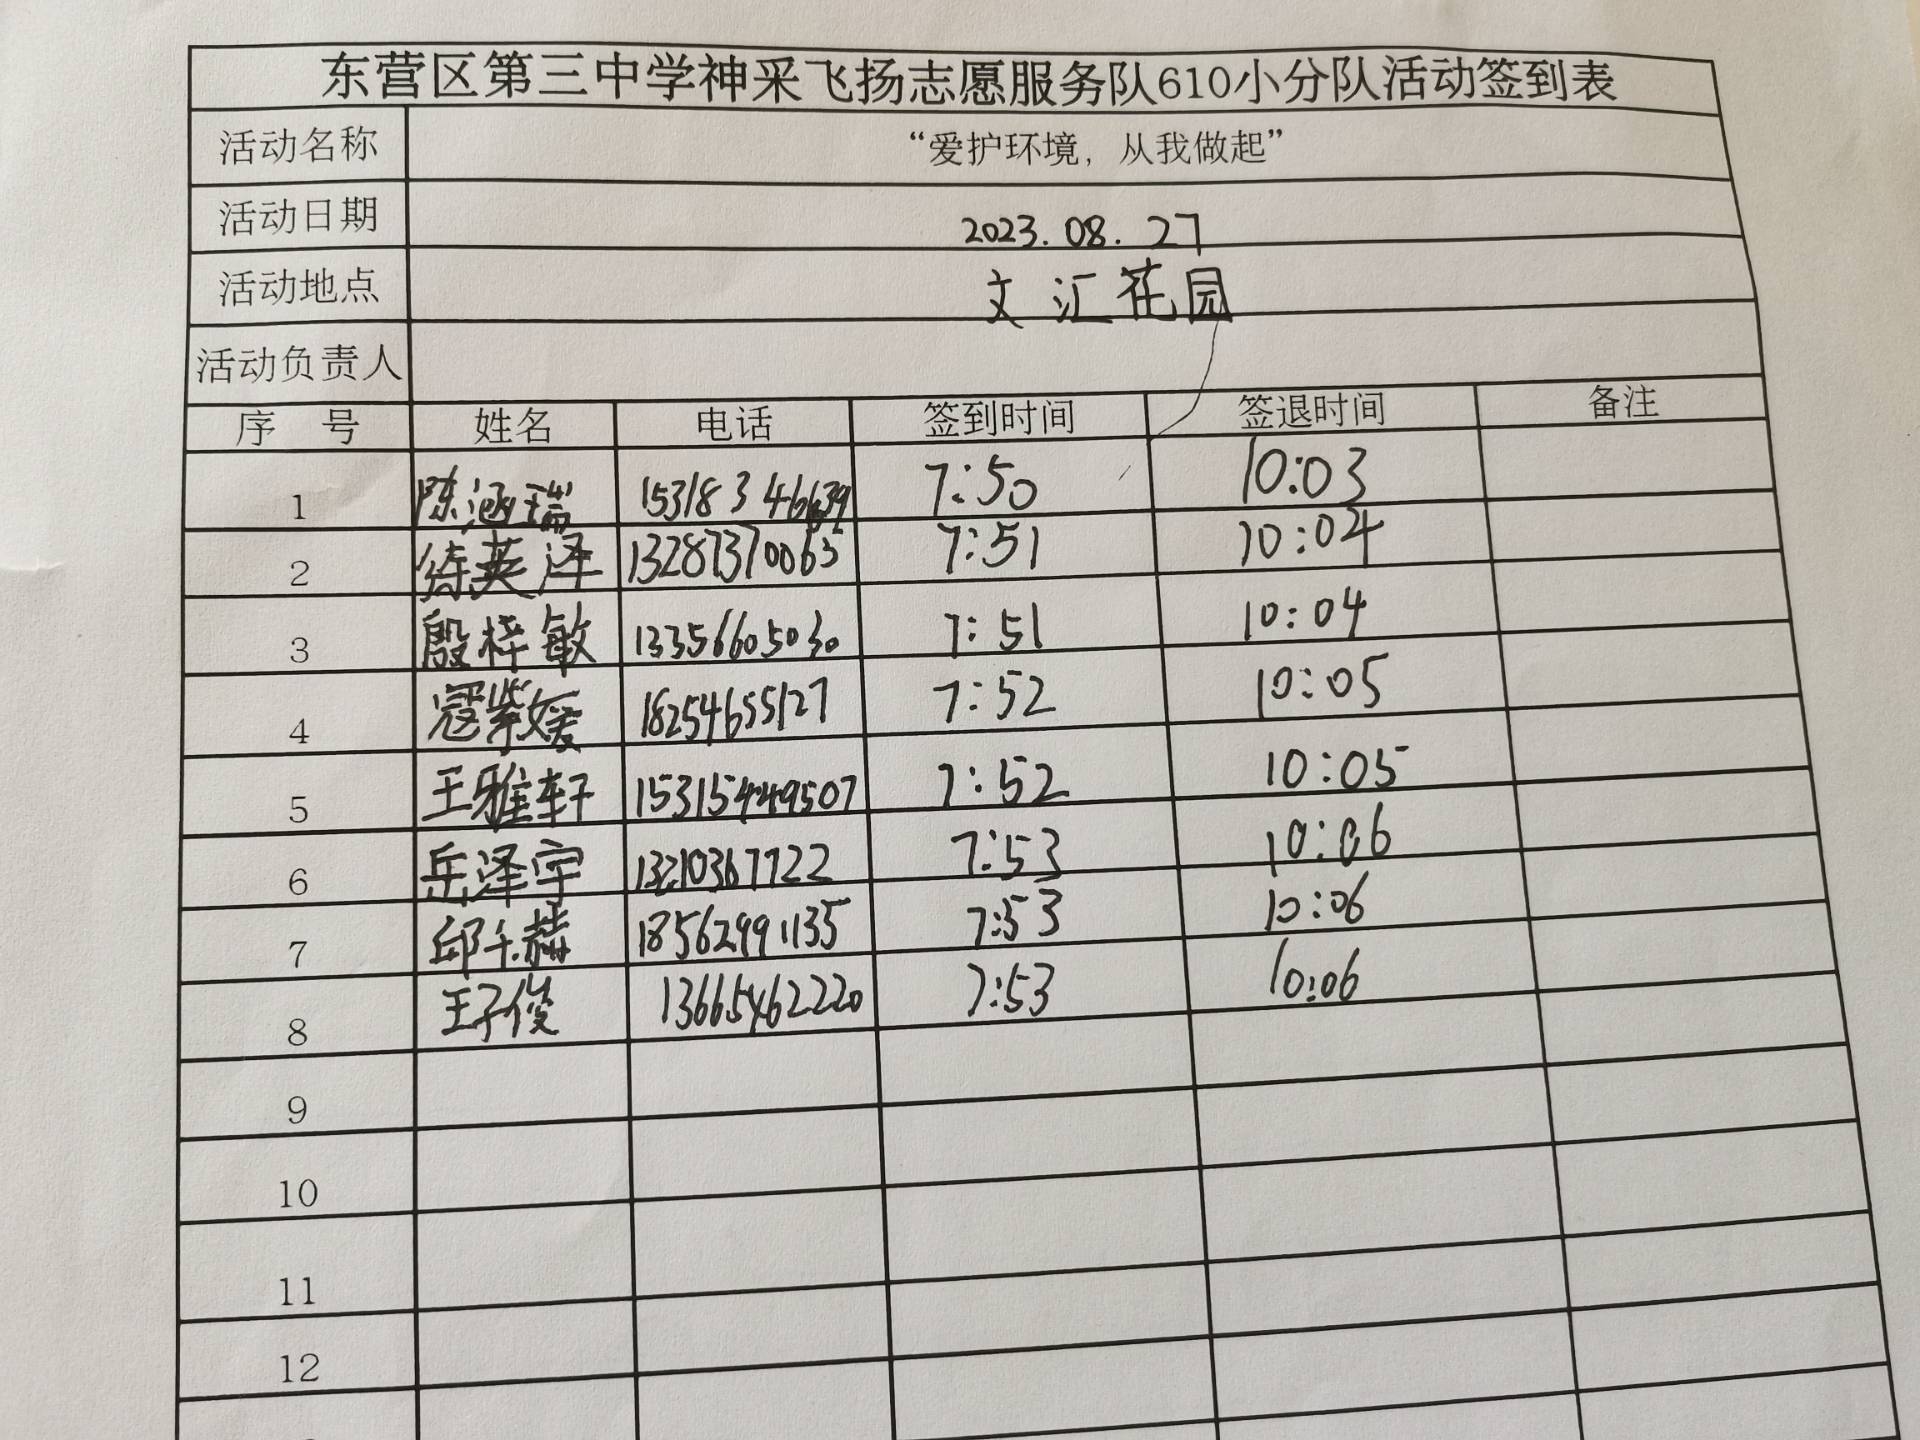 东营区第三中学神采飞扬志愿服务队610小分队活动签到表
活动名称 “爱护环境，从我做起”
活动日期 2023.08.27
活动地点 文汇花园
活动负责人
序 号 姓名 电话 签到时间 签退时间 备注
1 陈涵瑞 7:50 10:03
2 13287370065 7:51 10:04
3 殷梓敏 13356605030 7:51 10:04
4 寇紫媛 18254655127 7:52 10:05
5 王雅轩 7:52 10:05
6 岳泽宇 13210367722 7:53 10:06
7 18562991135 7:53 10:06
8 王子俊 13665462220 7:53 10:06
9
10
11
12